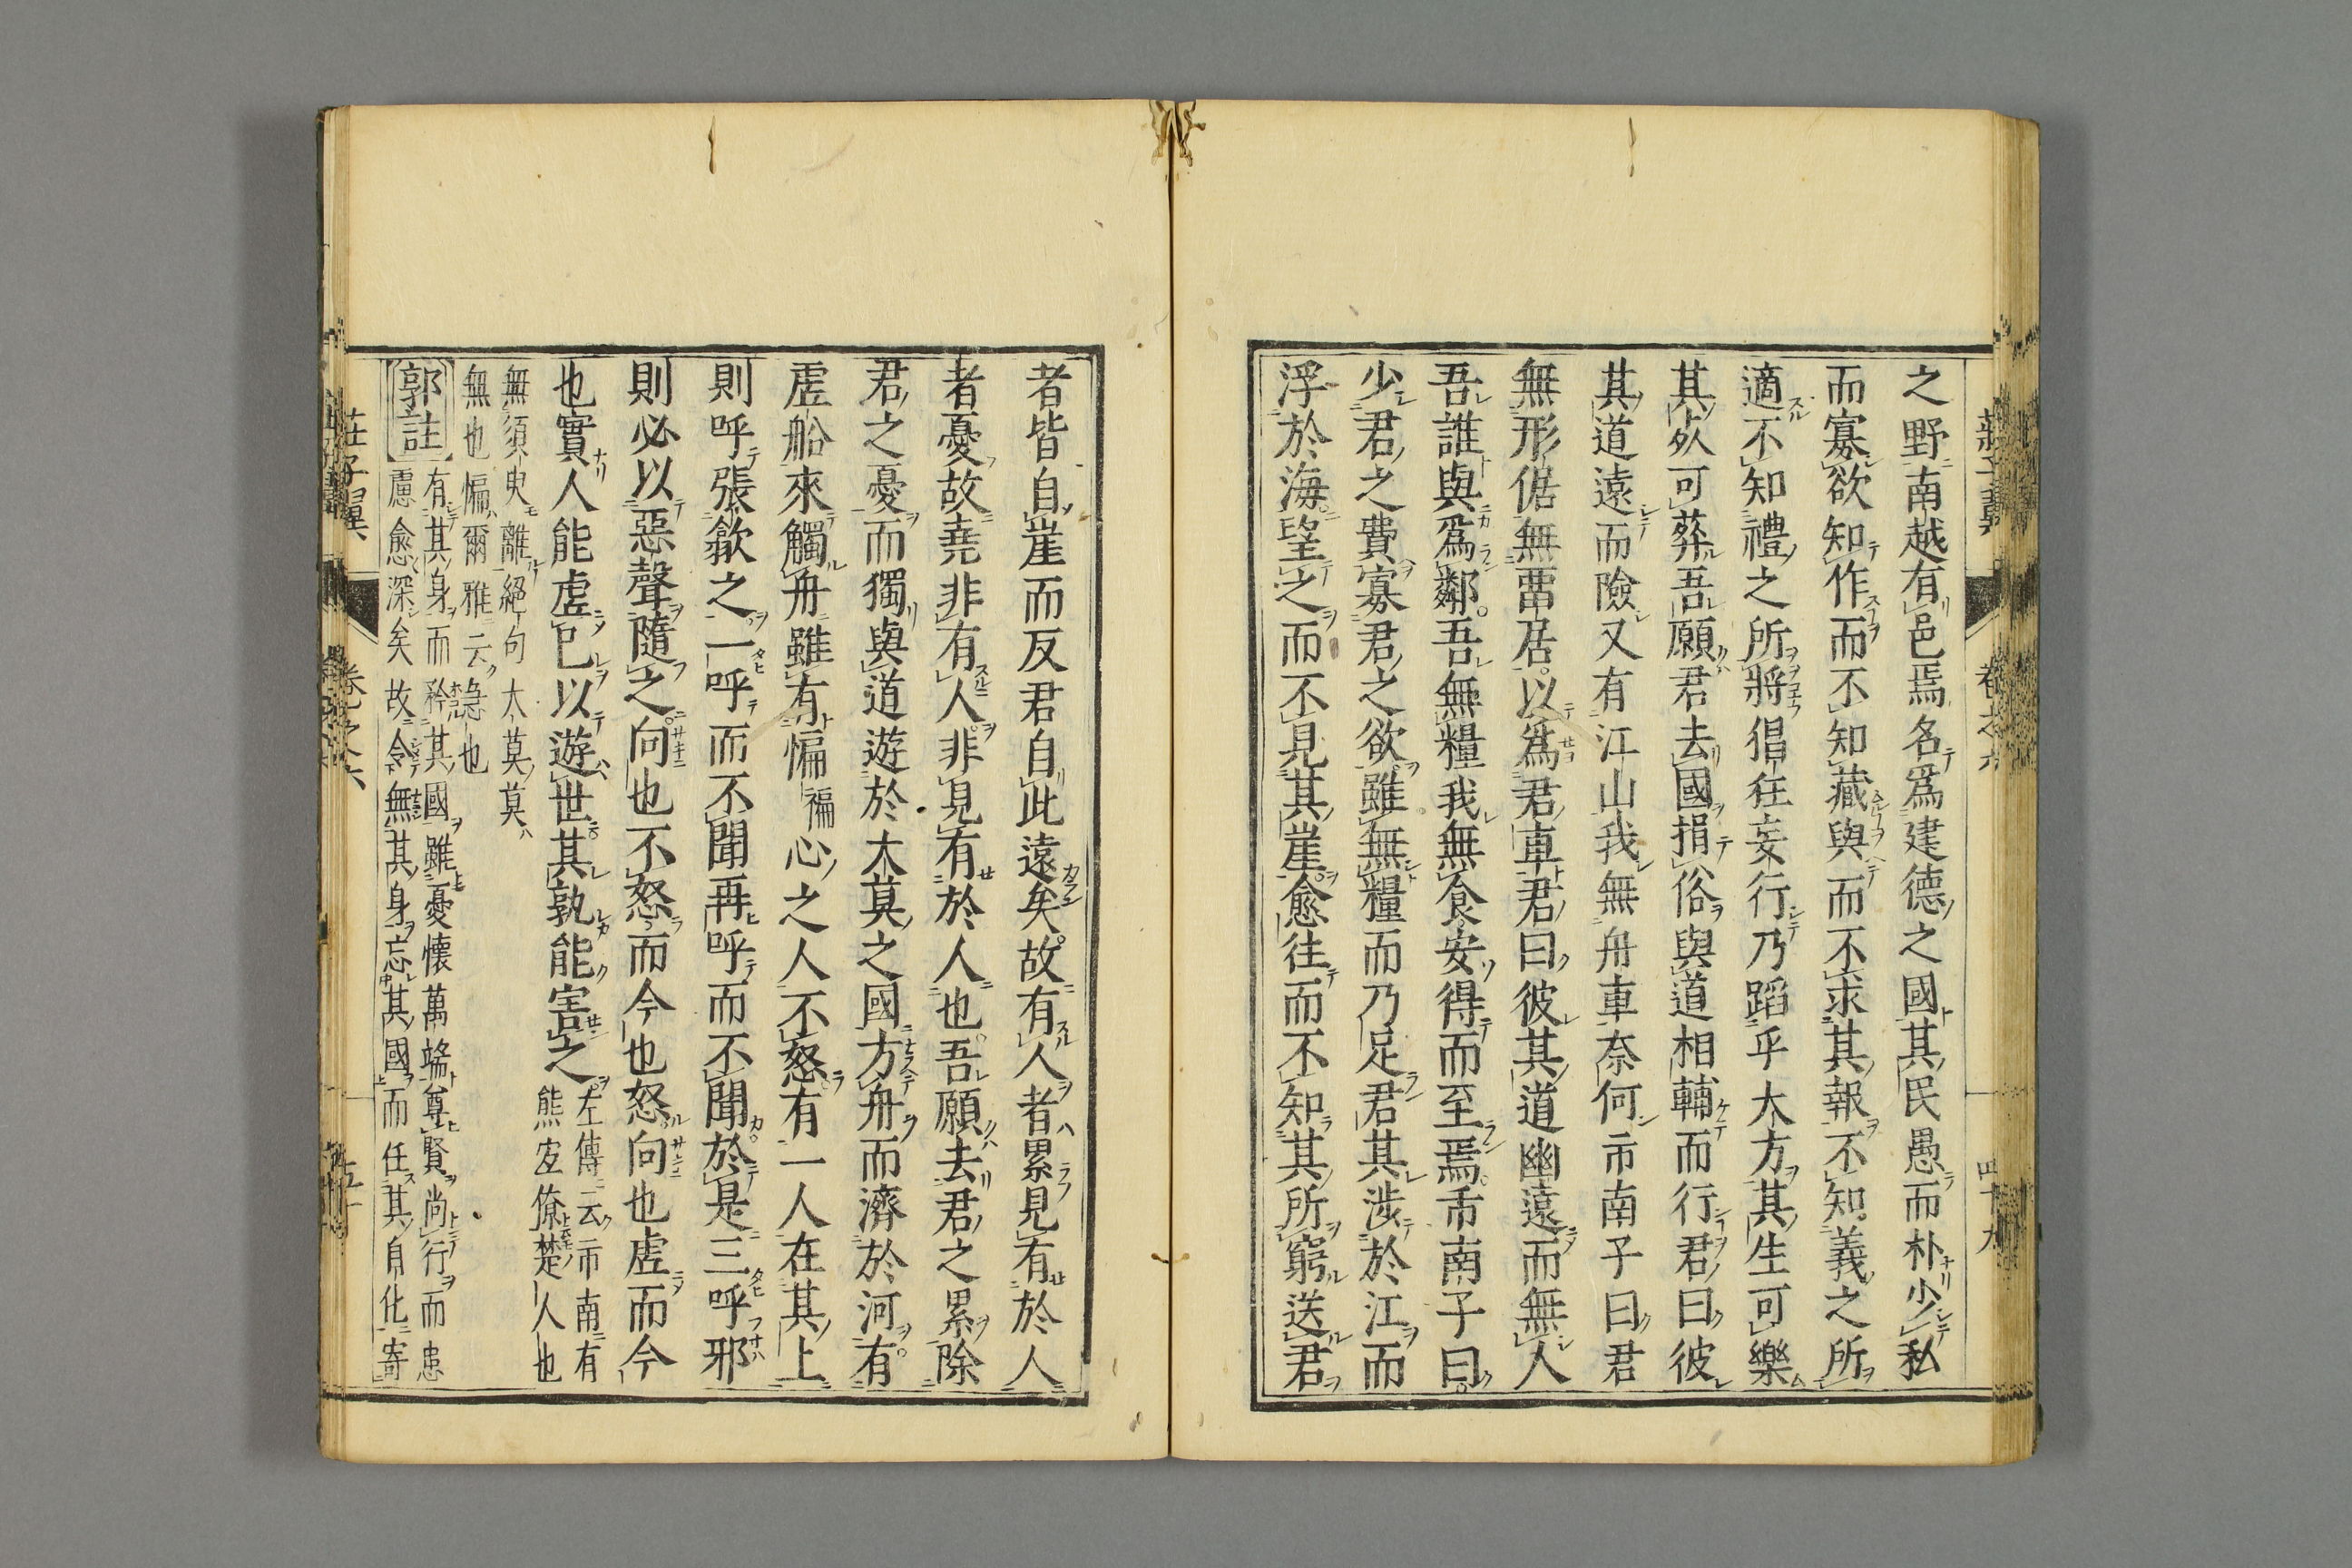 之野南越有邑焉名爲建德之國其民愚而朴少私
而寡欲知作而不知藏與而不求其報不知義之所
適不知禮之所將倡狂妄行乃蹈乎大方其生可樂
其死可葬吾願君去國捐俗與道相輔而行君曰彼
其道遠而險又有江山我無舟車奈何市南子曰君
無形倨無畱居以爲君車君曰彼其道幽遠而無人
吾誰與爲鄰吾無糧我無食安得而至焉市南子曰
少君之費寡君之欲雖無糧而乃足君其涉於江而
浮於海望之而不見其崖愈往而不知其所窮送君
者皆自崖而反君自此遠矣故有人者累見有於人
者憂故堯非有人非見有於人也吾願去君之累除
君之憂而獨與道遊於大莫之國方舟而濟於河有
虛船來觸舟雖有惼褊心之人不怒有一人在其上
則呼張歙之一呼而不聞再呼而不聞於是三呼邪
則必以惡聲隨之向也不怒而今也怒向也虛而今
也實人能虛已以遊世其孰能害之左傳云市南有
熊宜僚楚人也
無須臾離絕句大莫莫
無也惼爾雅云急也
郭註
有其身而矜其國雖憂懷萬端尊賢尚行而患
慮愈深矣故令無其身忘其國而任其自化寄
莊子翼
卷之六
四十九
莊子翼
卷之六
五十